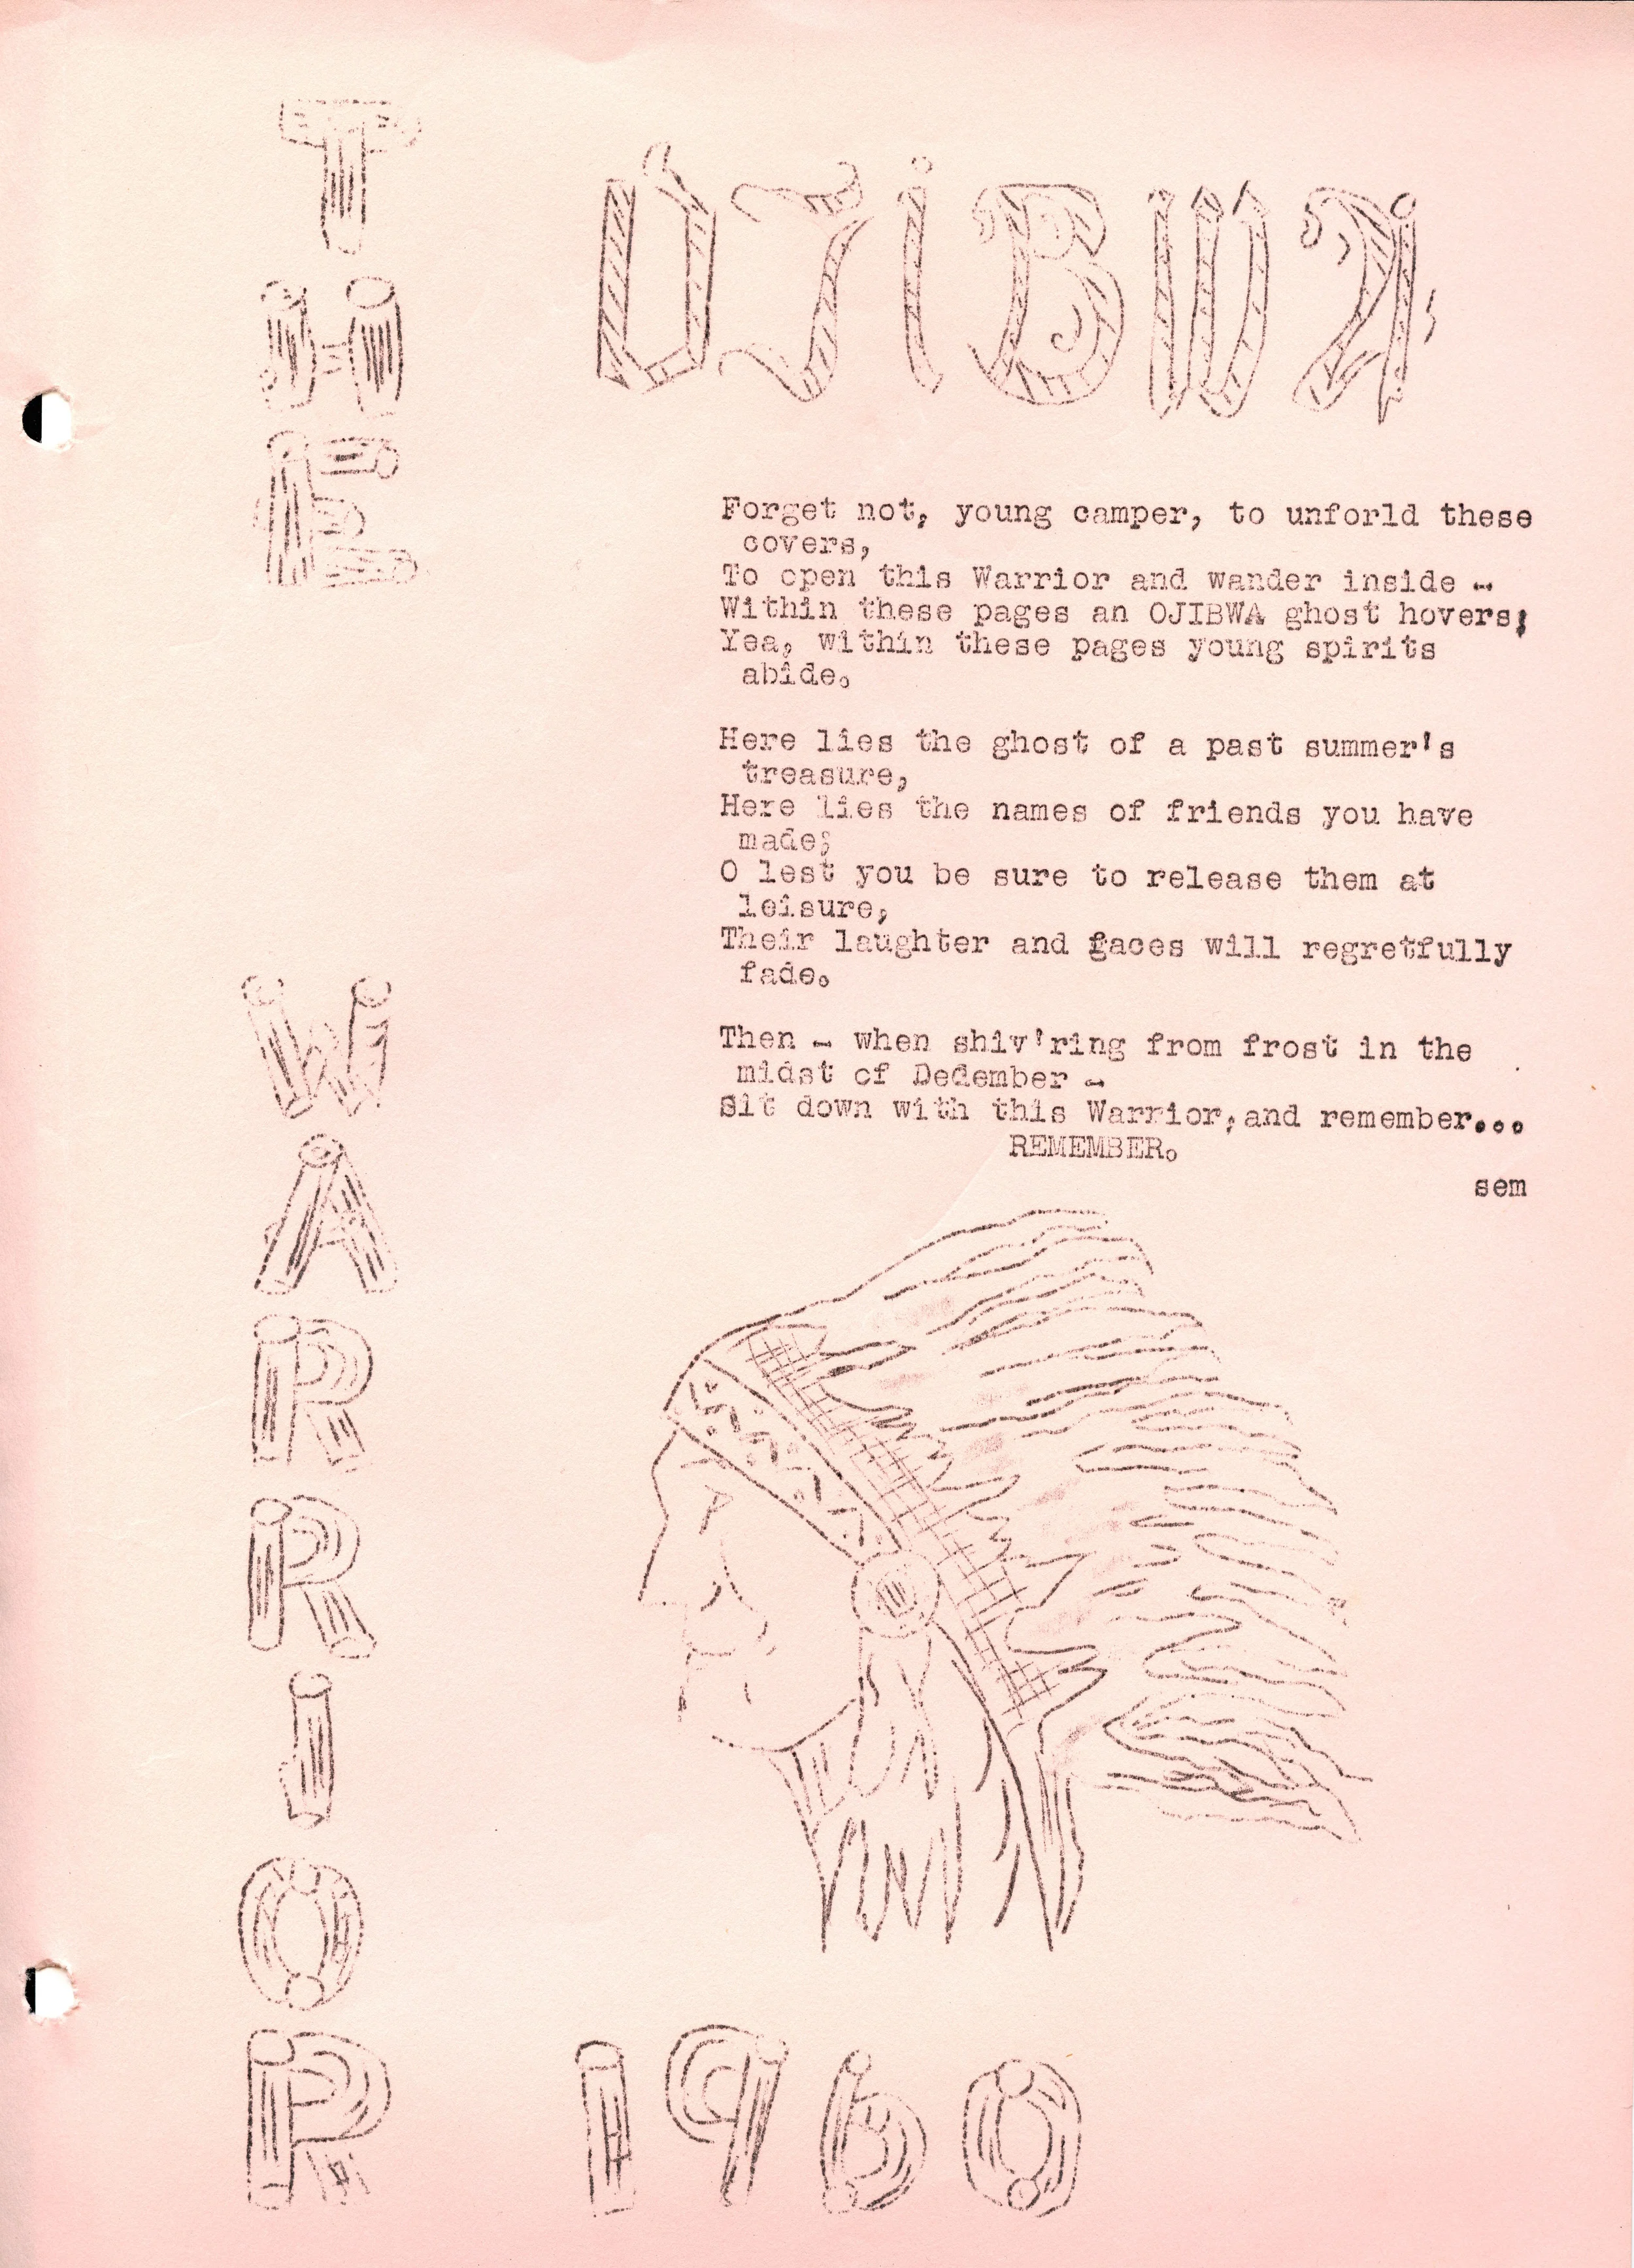 THE
WARRIOR
OJIBWA
Forget not, young camper, to unforld these
covers,
To open this Warrior and wander inside -
Within these pages an OJIBWA ghost hovers;
Yea, within these pages young spirits
abide.
Here lies the ghost of a past summer's
treasure,
Here lies the names of friends you have
made;
O lest you be sure to release them at
leisure,
Their laughter and faces will regretfully
fade.
Then - when shiv'ring from frost in the
midst of Dedember -
Sit down with this Warrior, and remember...
REMEMBER.
sem
1960